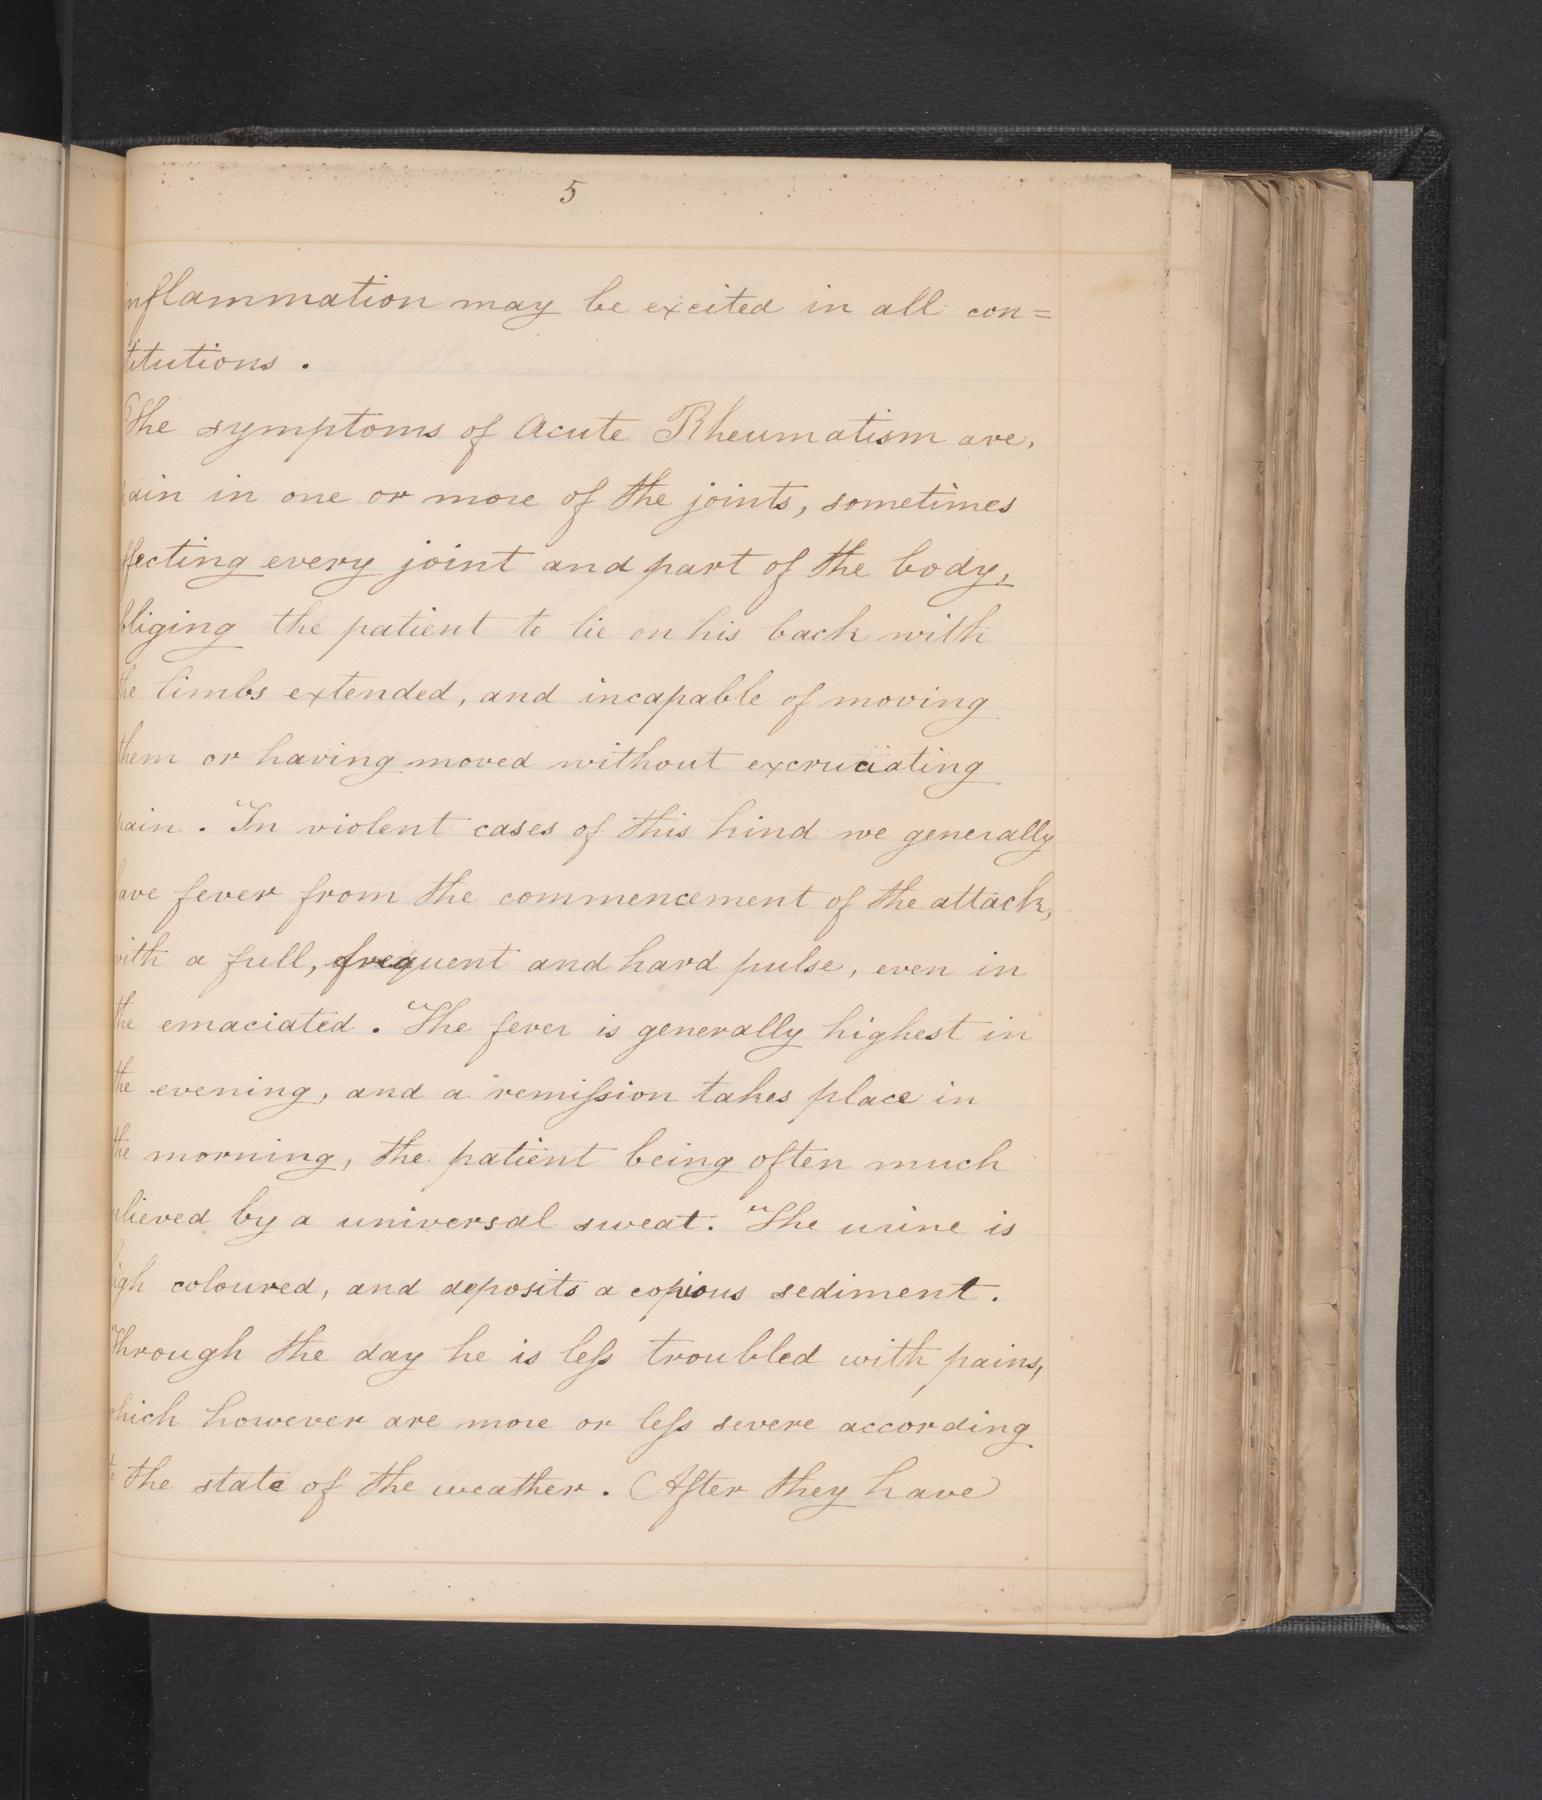 5
inflammation may be excited in all con=
titutions.
The symptoms of Acute Rheumatism are,
pain in one or more of the joints, sometimes
ffecting every joint and part of the body,
bliging the patient to lie on his back with
the limbs extended, and incapable of moving
them or having moved without excruciating
pain. In violent cases of this kind we generally
have fever from the commencement of the attack,
with a full, frequent and hard pulse, even in
the emaciated. The fever is generally highest in
the evening, and a remiſsion takes place in
the morning, the patient being often much
elieved by a universal sweat. The urine is
high coloured, and deposits a copious sediment.
Through the day he is leſs troubled with pains,
which however are more or leſs severe according
to the state of the weather. After they have